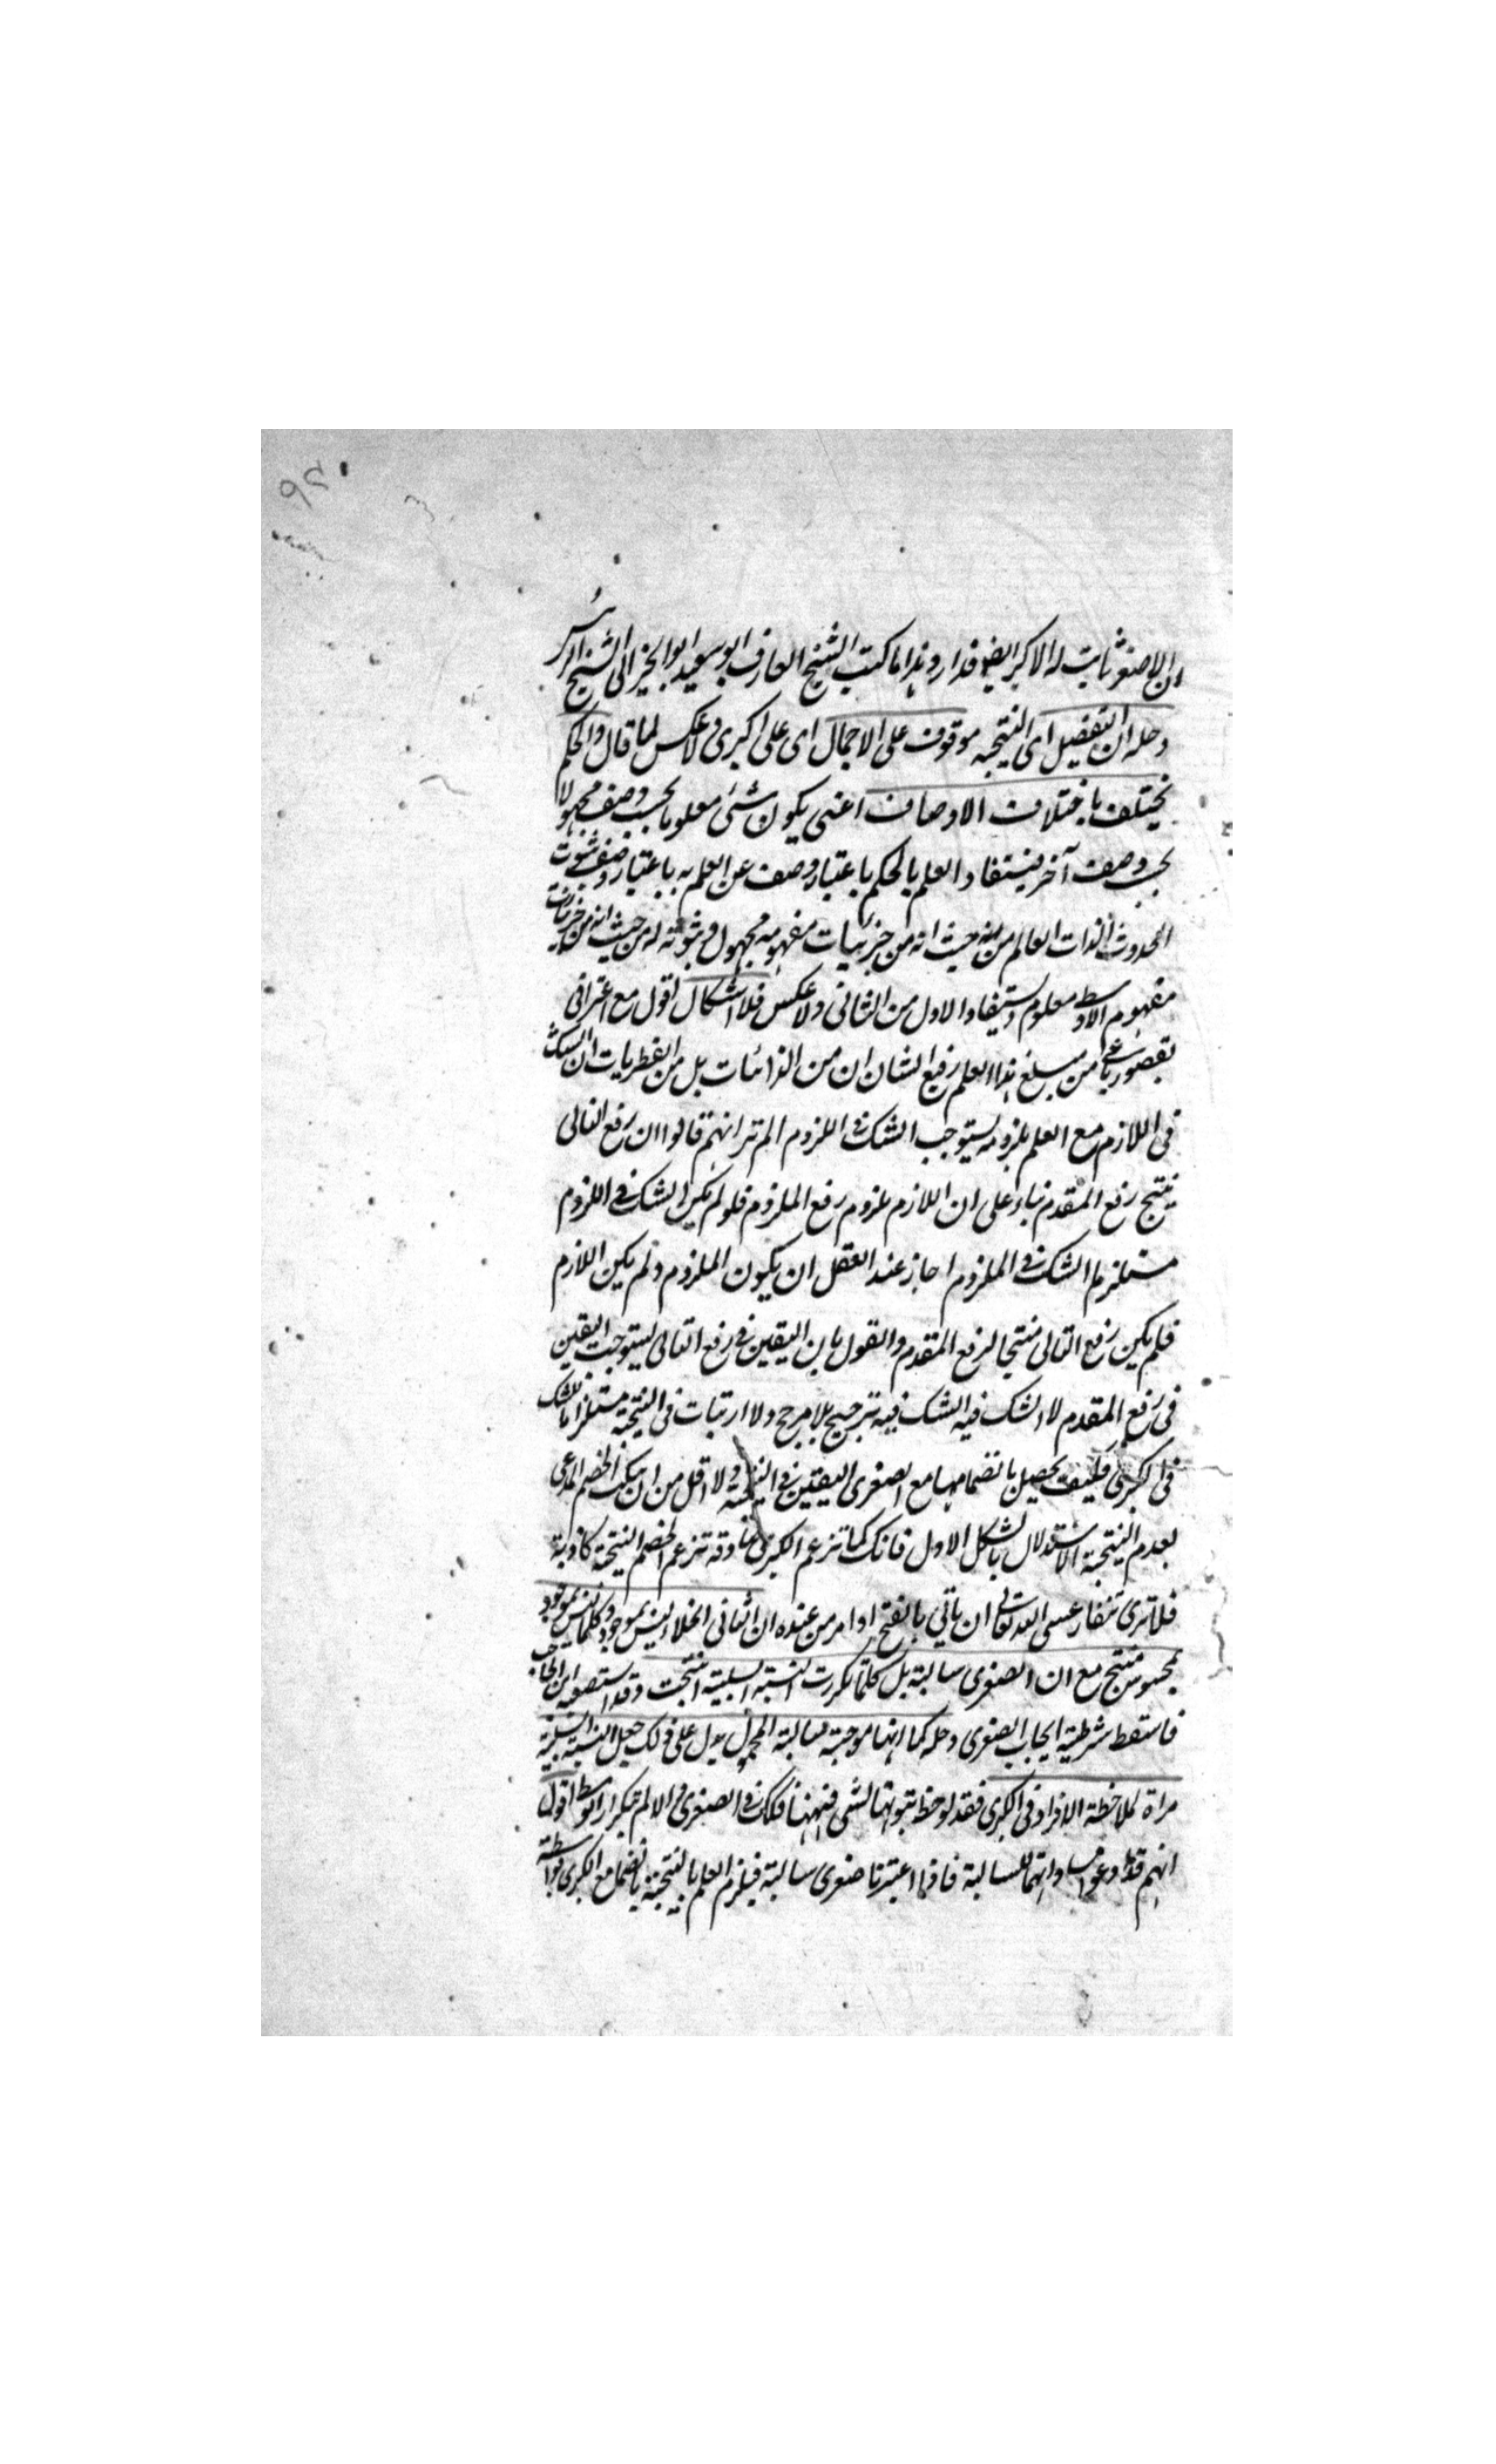 ان الاصغر ثابت له الاكبر ايضا فدار وهذا ما كتب الشيخ العارف ابو سعيد ابو الخير الى الشيخ الرئيس
وحله ان التفصيل اى النتيجة موقوف على الاجمال اى على اكبرى ولا عكس لما قال والحكم
يختلف باختلاف الاوصاف اعنى يكون شئ معلوما بحسب وصف مجهولا
بحسب وصف آخر فيستفاد العلم بالحكم باعتبار وصف عن العلم به باعتبار وصف ثبوت
الحدوث لذات العالم من حيث انه من جزئيات مفهومه مجهول وثبوته له من حيث انه من جزئيات
مفهوم الاوسط معلوم ويستفاد الاول من الثانى ولا عكس فلا اشكال اقول مع اعترافى
بقصور باعى من مبلغ هذا العلم رفيع الشان ان من الذائعات بل من الفطريات ان الشك
فى اللازم مع العلم بلزومه يستوجب الشك فى الملزوم الم تر انهم قالوا ان رفع التالى
ينتج رفع المقدم بناء على ان اللازم يلزوم رفع الملزوم فلو لم يكن الشك فى اللزوم
مستلزما الشك فى الملزوم اجاز عند العقل ان يكون الملزوم ولم يكن اللازم
فلم يكن رفع التالى منتجا لرفع المقدم والقول بان اليقين فى رفع التالى يستوجب اليقين
فى رفع المقدم لا الشك فيه الشك فيه ترجيح بلا مرجح ولا ارتياب فى النتيجة مستلزما للشك
فى الكبرى فكيف يحصل بانضمامها مع الصغرى اليقين فى النتيجة ولا اقل من ان يبكت الخصم المدعى
بعدم النتيجة الاستدلال بالشكل الاول فانك كما تزعم الكبرى صادقة تزعم الخصم النتيجة كاذبة
فلا ترى تنفار عسى الله تعالى ان ياتي بالفتح او امر من عنده ان الثانى الخلاء ليس بموجود وكلما ليس بموجود
بمحسوس منتج مع ان الصغرى سالبة بل كلما تكررت النسبة السلبية انتجت وقد استصعبه ابن الحاجب
فاسقط شرطية ايجاب الصغرى وحله كما انها موجبة سالبة المحمول يدل على ذلك جعل النسبة السلبية
مراة لملاحظة الافراد فى الكبرى فقد لوحظ ثبوتها لشئ فيها فكذا فى الصغرى والا لم يتكرر الاوسط اقول
انهم قد ادعوا مساواتهما للسالبة فاذا اعتبرنا صغرى سالبة فيلزم العلم بالنتيجة بانضمام مع الكبرى بواسطة